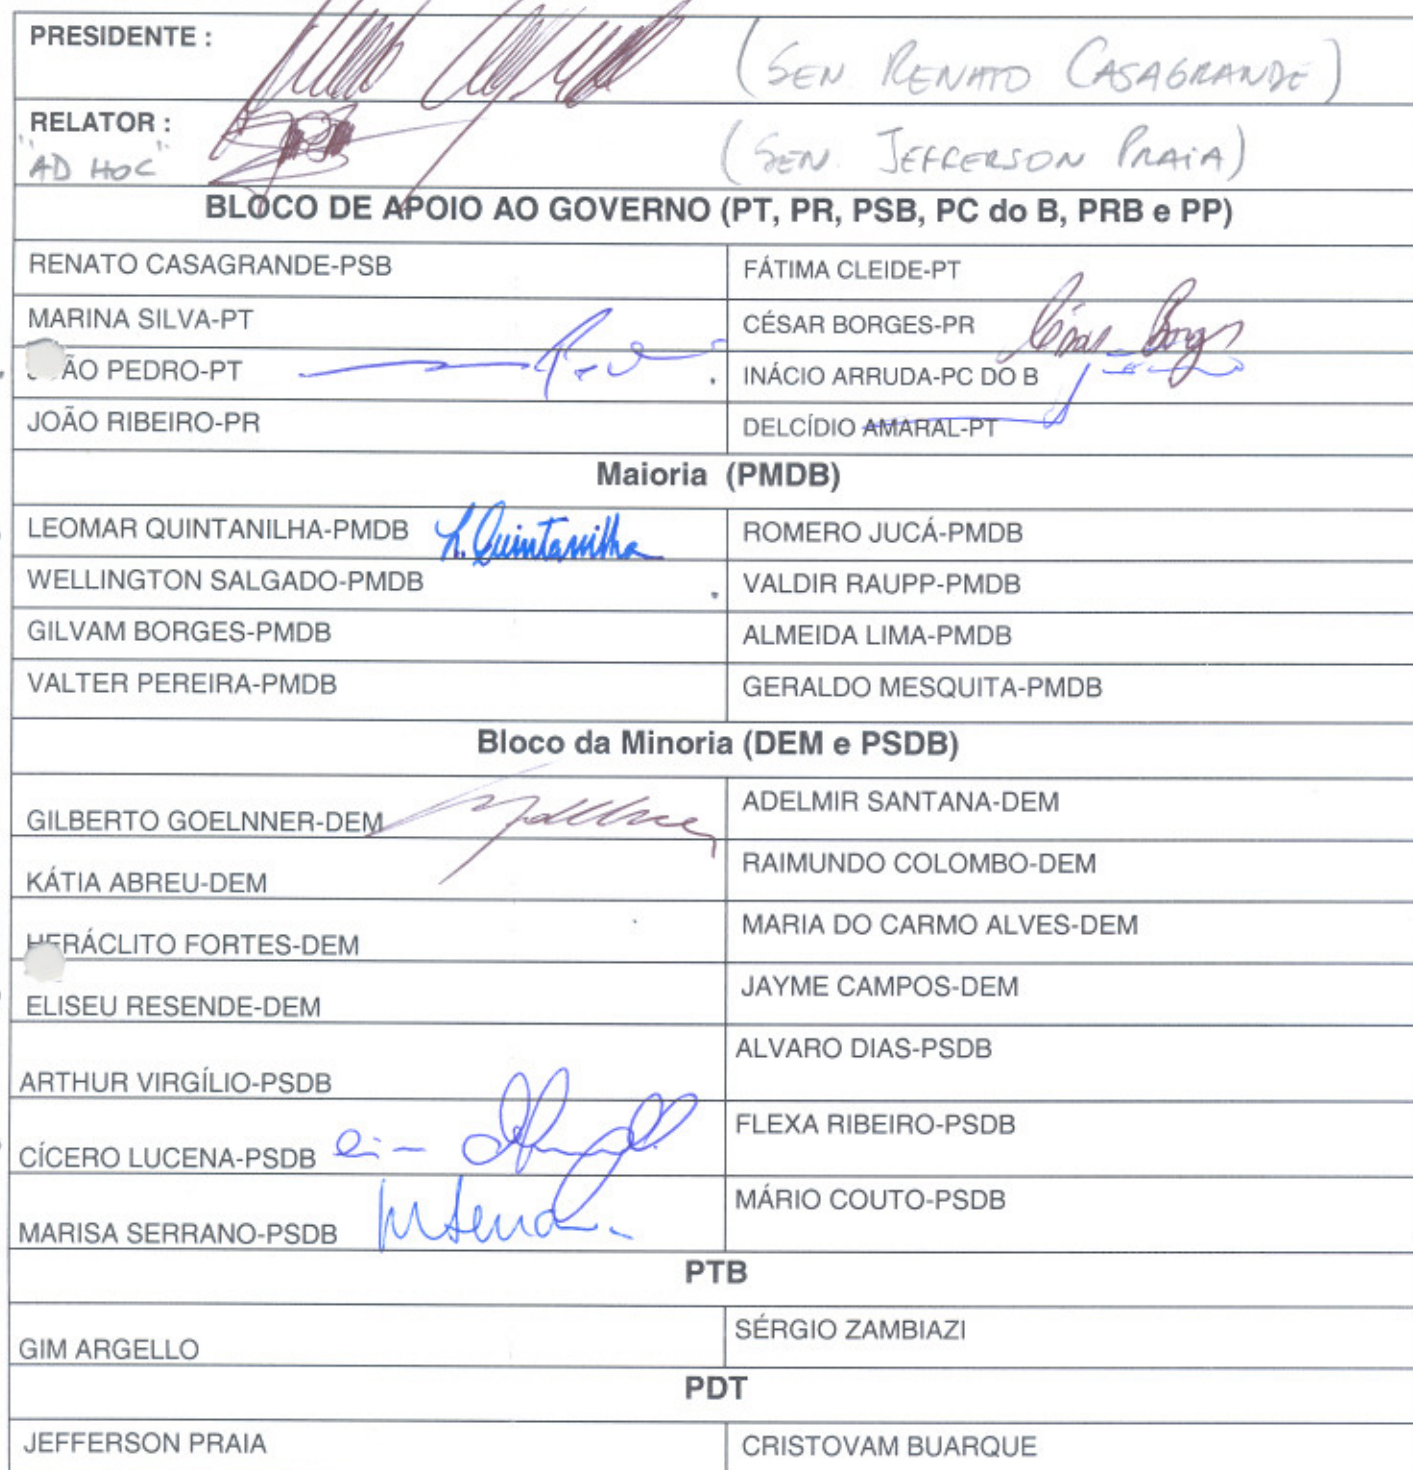 PRESIDENTE : (SEN RENATO CASAGRANDE)
RELATOR : (SEN. JEFFERSON PRAIA)
"AD HOC"
BLOCO DE APOIO AO GOVERNO (PT, PR, PSB, PC do B, PRB e PP)
RENATO CASAGRANDE-PSB FÁTIMA CLEIDE-PT
MARINA SILVA-PT CÉSAR BORGES-PR César Borges
ÃO PEDRO-PT INÁCIO ARRUDA-PC DO B
JOÃO RIBEIRO-PR DELCÍDIO AMARAL-PT
Maioria (PMDB)
LEOMAR QUINTANILHA-PMDB L. Quintanilha ROMERO JUCÁ-PMDB
WELLINGTON SALGADO-PMDB VALDIR RAUPP-PMDB
GILVAM BORGES-PMDB ALMEIDA LIMA-PMDB
VALTER PEREIRA-PMDB GERALDO MESQUITA-PMDB
Bloco da Minoria (DEM e PSDB)
GILBERTO GOELNNER-DEM ADELMIR SANTANA-DEM
KÁTIA ABREU-DEM RAIMUNDO COLOMBO-DEM
HERÁCLITO FORTES-DEM MARIA DO CARMO ALVES-DEM
ELISEU RESENDE-DEM JAYME CAMPOS-DEM
ARTHUR VIRGÍLIO-PSDB ALVARO DIAS-PSDB
CÍCERO LUCENA-PSDB FLEXA RIBEIRO-PSDB
MARISA SERRANO-PSDB MÁRIO COUTO-PSDB
PTB
GIM ARGELLO SÉRGIO ZAMBIAZI
PDT
JEFFERSON PRAIA CRISTOVAM BUARQUE